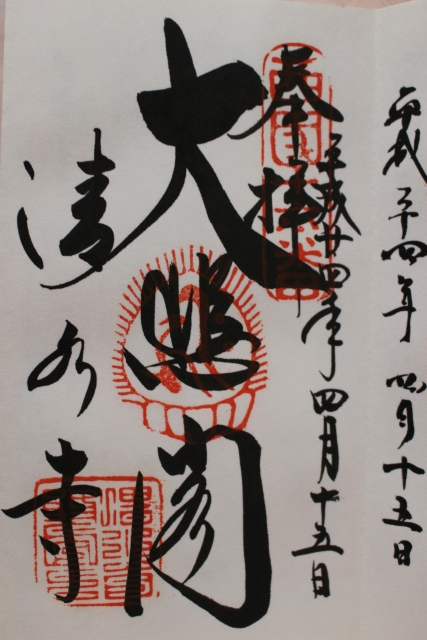 平成二十四年 四月十五日
奉拝
平成廿四年四月十五日
大悲閣
清水寺